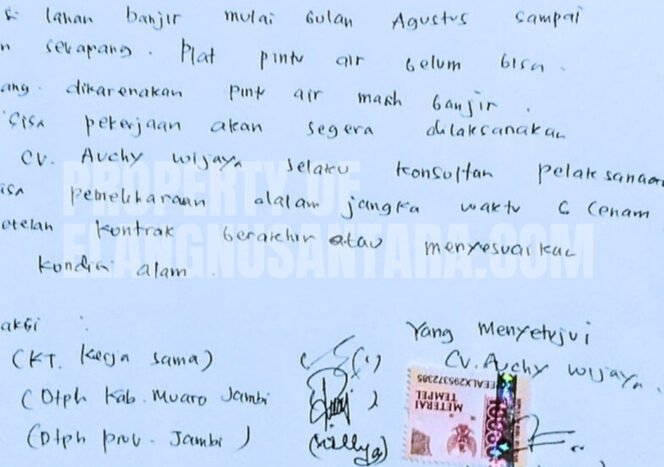 lahan banjir mulai bulan Agustus sampai
n sekarang. Plat pintu air belum bisa
ang dikarenakan pintu air masih banjir.
Sisa pekerjaan akan segera dilaksanakan
CV. Auchy wijaya selaku konsultan pelaksanaan
isa pemeliharaan dalam jangka waktu 6 (enam
etelah kontrak berakhir atau menyesuaikan
kondisi alam.
PROPERTY OF
ELANGNUSANTARA.COM
aksi :
Yang Menyetujui
(KT. Kerja sama)
CV. Auchy wijaya.
(Dtph Kab. Muaro Jambi
(Dtph prov. Jambi)
METERAI
TEMPEL
10000